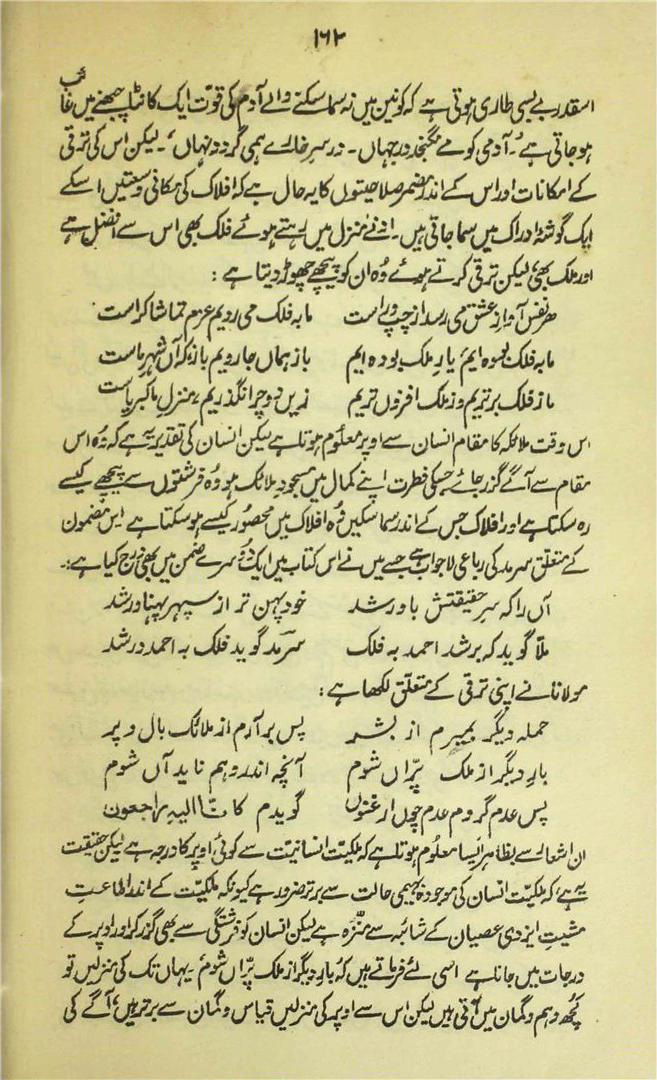 ۱۶۲
اسقدر بے بسی طاری ہوتی ہے کہ کونین میں نہ سما سکنے والے آدم کی قوّت ایک کانٹا چبھنے میں غائب
ہو جاتی ہے ’۔ آدمی کو مے نگنجد در جہاں ۔ در سر خارے ہمی گردد نہاں ‘ ۔ لیکن اس کی ترقی
کے امکانات اور اس کے اندر مضمر صلاحیتوں کا یہ حال ہے کہ افلاک کی مکانی وسعتیں اسکے
ایک گوشۂ ادراک میں سما جاتی ہیں ۔ ادنےٰ منزل میں رہتے ہوئے فلک بھی اس سے افضل ہے
اور ملک بھی ، لیکن ترقی کرتے ہوئے وُہ ان کو پیچھے چھوڑ دیتا ہے :
هر نفس آواز عشق می رسد از چپ و راست ما به فلک می رویم عزم تماشا کراست
ما به فلک بوده ایم ، یار ملک بوده ایم باز همان جا رویم باز که آں شہر ماست
ما ز فلک برتریم و ز ملک افزوں تریم زیں دو چرا نگذریم ، منزل ما کبریاست
اس وقت ملائکہ کا مقام انسان سے اوپر معلوم ہوتا ہے لیکن انسان کی تقدیر یہ ہے کہ وُہ اس
مقام سے آگے گزر جائے جسکی فطرت اپنے کمال میں مسجودِ ملائک ہو وُہ فرشتوں سے پیچھے کیسے
رہ سکتا ہے اور افلاک جس کے اندر سما سکیں وُہ افلاک میں محصُور کیسے ہو سکتا ہے اس مضمون
کے متعلق سرمد کی رباعی لاجواب ہے جسے میں نے اس کتاب میں ایک دُوسرے ضمن میں بھی درج کیا ہے :۔
آں را کہ سرِ حقیقتش باور شد خود پہن تر از سپہر پہناور شد
ملّا گوید کہ بر شد احمد بہ فلک سرمد گوید فلک بہ احمد در شد
مولانا نے اپنی ترقی کے متعلق لکھا ہے :
حملہ دیگر بمیرم از بشر پس برآرم از ملائک بال و پر
بارِ دیگر از ملک پرّاں شوم آنچہ اندر وہم ناید آں شوم
پس عدم گردم عدم چوں ارغنوں گویدم کانّا الیہ راجعون
ان اشعار سے بظاہر ایسا معلُوم ہوتا ہے کہ ملکیّت انسانیّت سے کوئی اوپر کا درجہ ہے لیکن حقیقت
یہ ہے ، کہ ملکیّت انسان کی موجودہ بہیمی حالت سے برتر ضرور ہے کیونکہ ملکیّت کے اندر اطاعتِ
مشیتِ ایزدی عصیان کے شائبہ سے منزّہ ہے لیکن انسان کو فرشتگی سے بھی گذر کر اور اوپر کے
درجات میں جانا ہے اسی لئے فرماتے ہیں کہ ’ بار دیگر از ملک پرّاں شوم ‘ ۔ یہاں تک کی منزلیں تو
کُچھ وہم و گمان میں آتی ہیں لیکن اس سے اوپر کی منزلیں قیاس و گمان سے برتر ہیں ، آگے کی